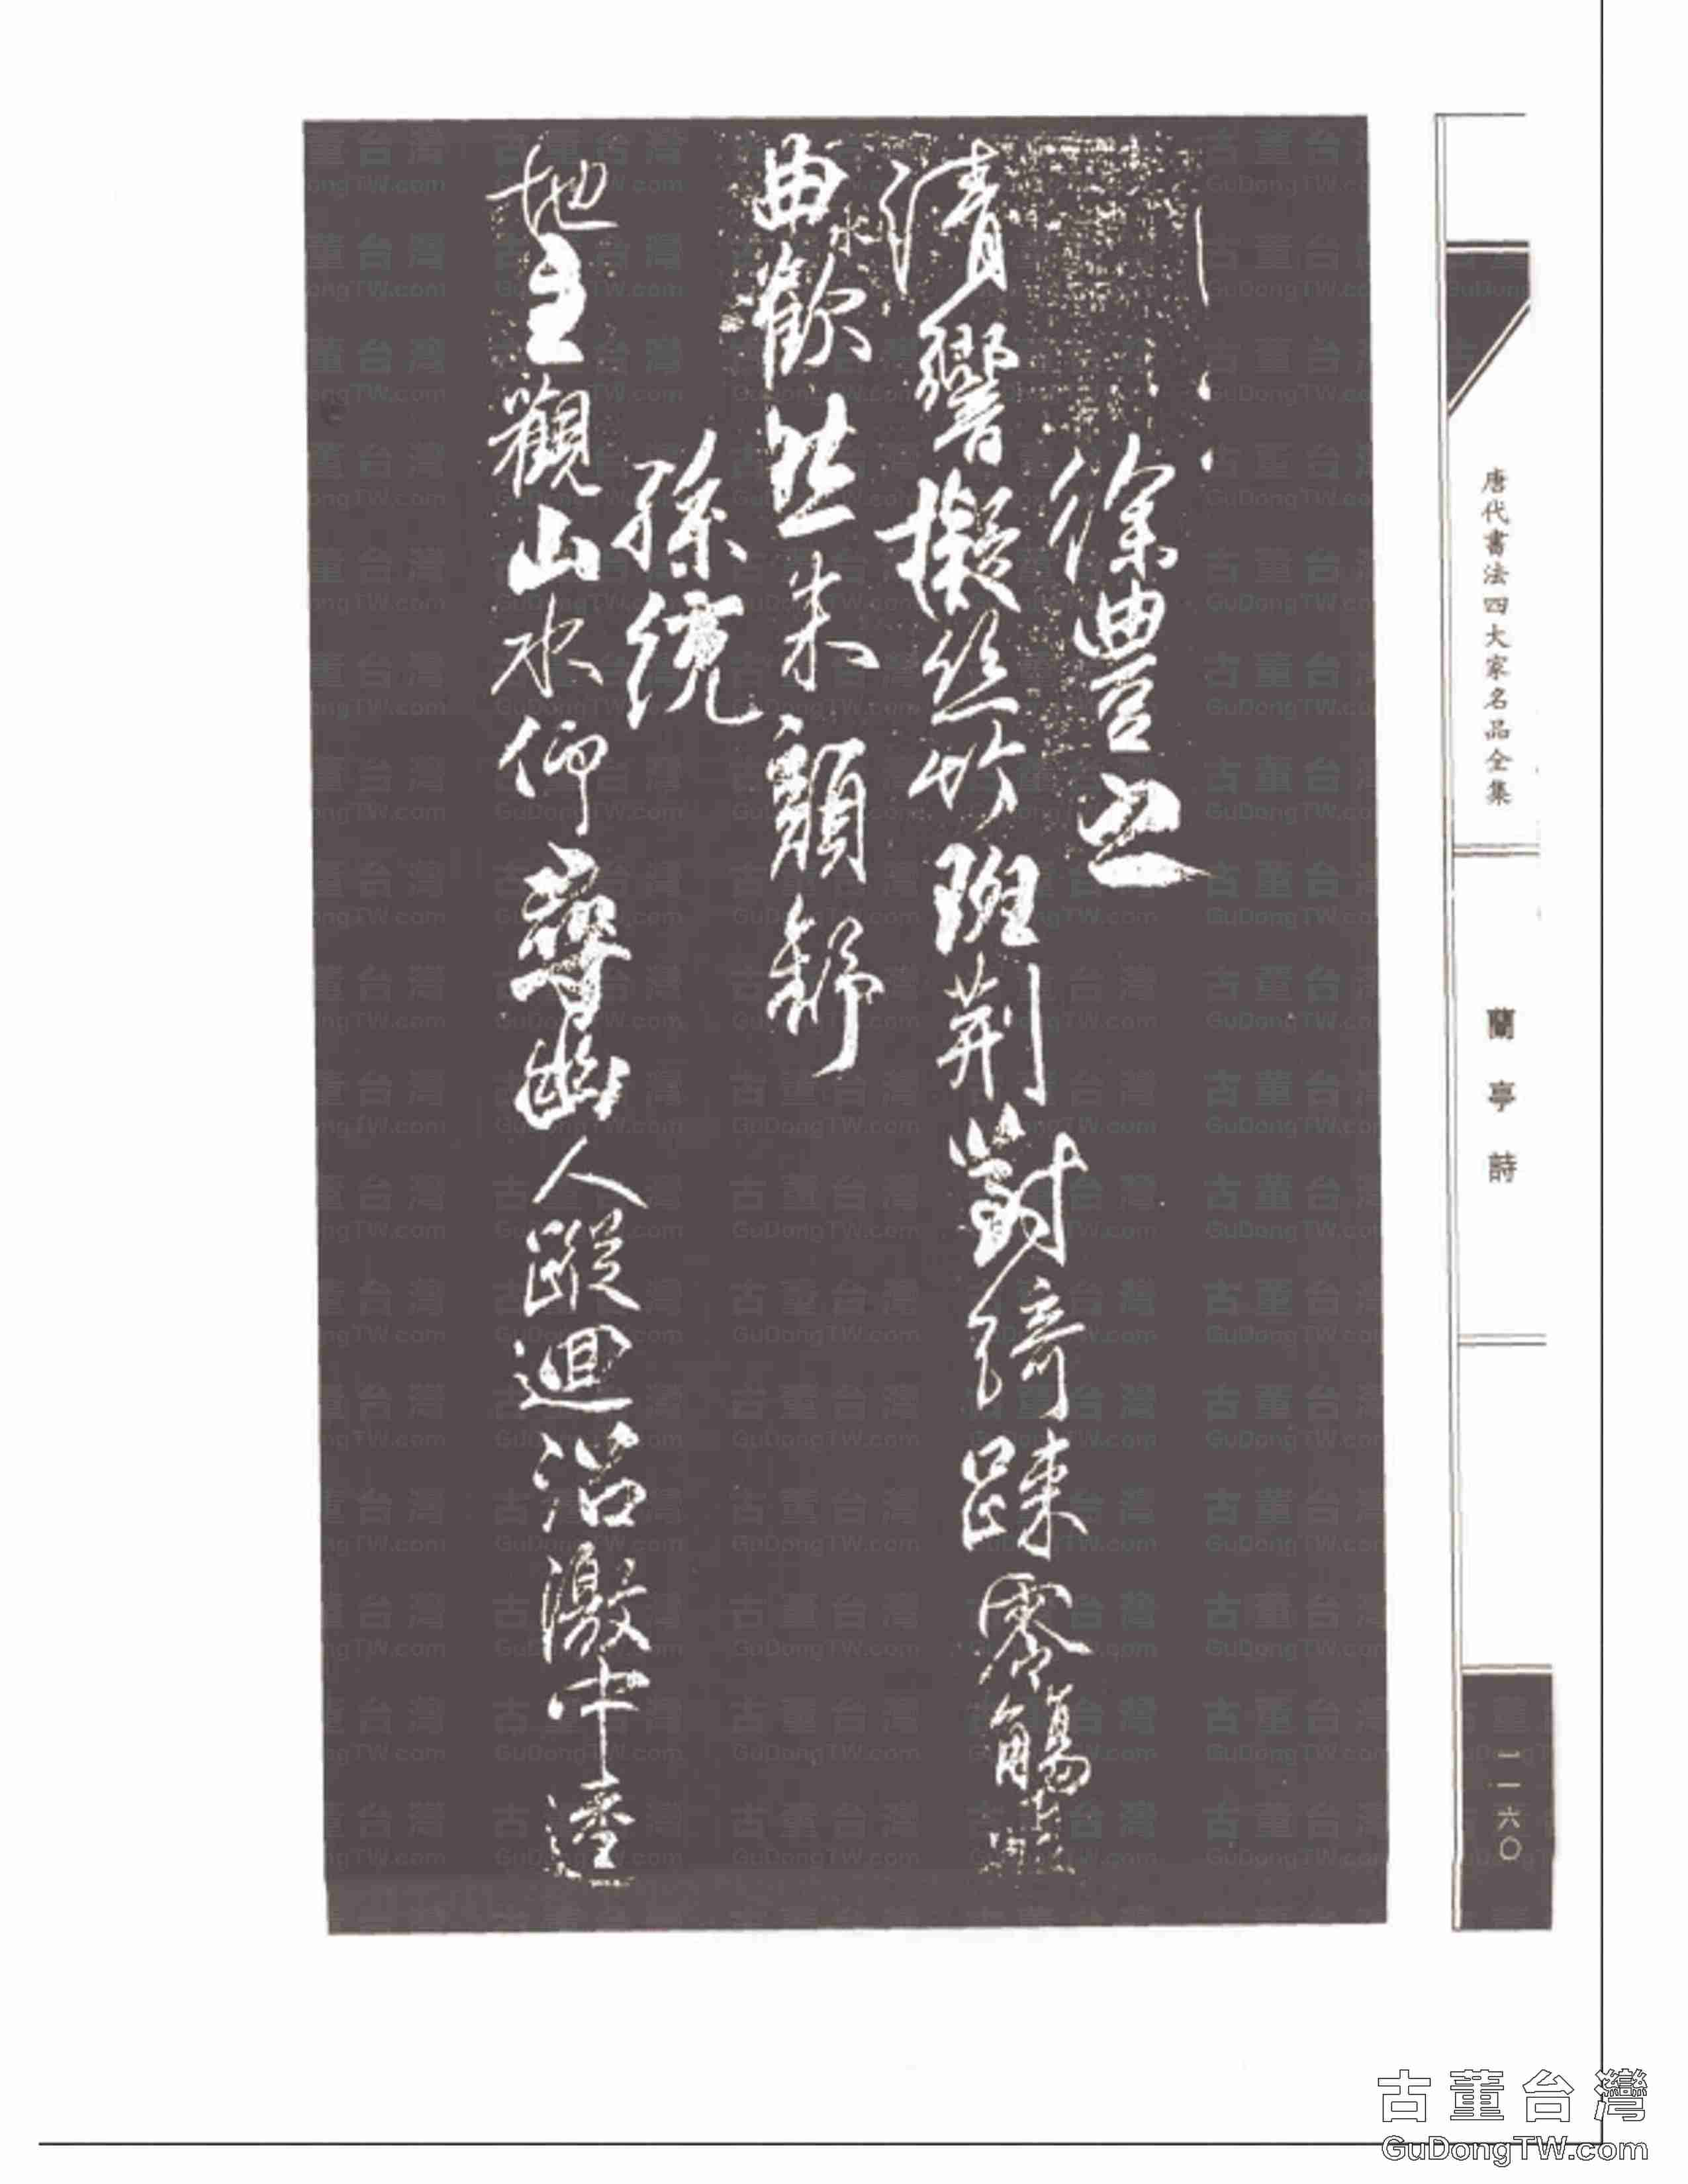 徐豊之
清響擬絲竹班荆對綺踈零觴
曲水歡然朱顔舒
孫統
地主觀山水仰尋幽人蹤迴沼激中逵
唐代書法四大家名品全集
蘭亭詩
一一六〇
古董台灣
GuDongTW.com